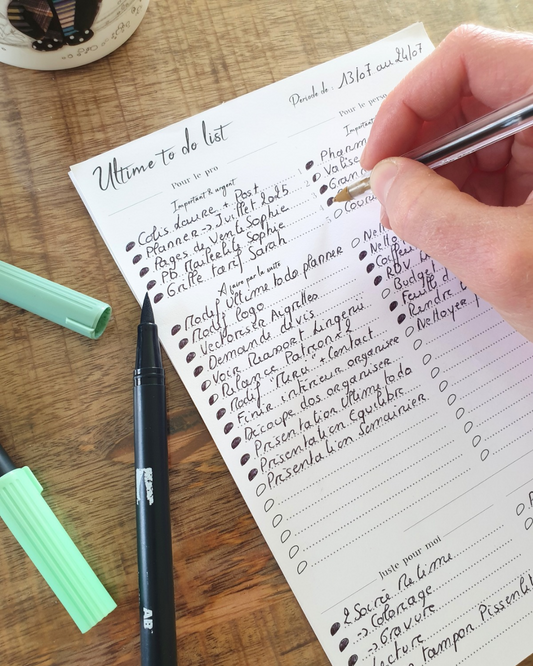 Ultime to do list
Periode de : 13/07 au 24/07
Pour le pro
Important & urgent
Colis Laure + Post
Planner → Juillet 2025
Pages de vente Sophie
PB Mailerlite Sophie
Grille tarif Sarah
A faire par la suite
Modif Ultime to do planner
Modif logo
Vectoriser Aigrilles
Demande devis
Voir Reassort lingerie
Relance Patron x 2
Modif "Menu" + Contact
Finir intérieur organiser
Découpe dos organiser
Présentation Ultime to do
Présentation Equilibre
Présentation Semainier
Pour le perso
Important
Pharm
Valise
Gran
Cour
Nett
Nettoy
Coiffeu
RDV
Budget
Feuille d
Rendre
Nettoyer
Juste pour moi
2 Soirée
→ Coloriage
→ Gravure
Lecture
tampon Pissenlit
AB